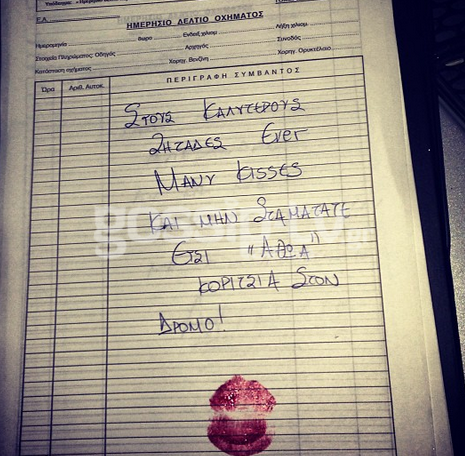 ΗΜΕΡΗΣΙΟ ΔΕΛΤΙΟ ΟΧΗΜΑΤΟΣ
Ε.Α.
Ημερομηνία ώρα Ένδειξ χιλιομ. Λήξη χιλιομ.
Στοιχεία Πληρώματος: Οδηγός Αρχηγός Συνοδός
Κατάσταση οχήματος Χορηγ. Βενζίνη Χορηγ. Ορυκτέλαιο
Ώρα Αριθ. Αυτοκ. ΠΕΡΙΓΡΑΦΗ ΣΥΜΒΑΝΤΟΣ
ΣΤΟΥΣ ΚΑΛΥΤΕΡΟΥΣ
ΖΗΤΑΔΕΣ Ever
MANY KISSES
ΚΑΙ ΜΗΝ ΣΤΑΜΑΤΑΤΕ
ΕΤΣΙ "ΑΘΩΑ"
ΚΟΡΙΤΣΙΑ ΣΤΟΝ
ΔΡΟΜΟ!